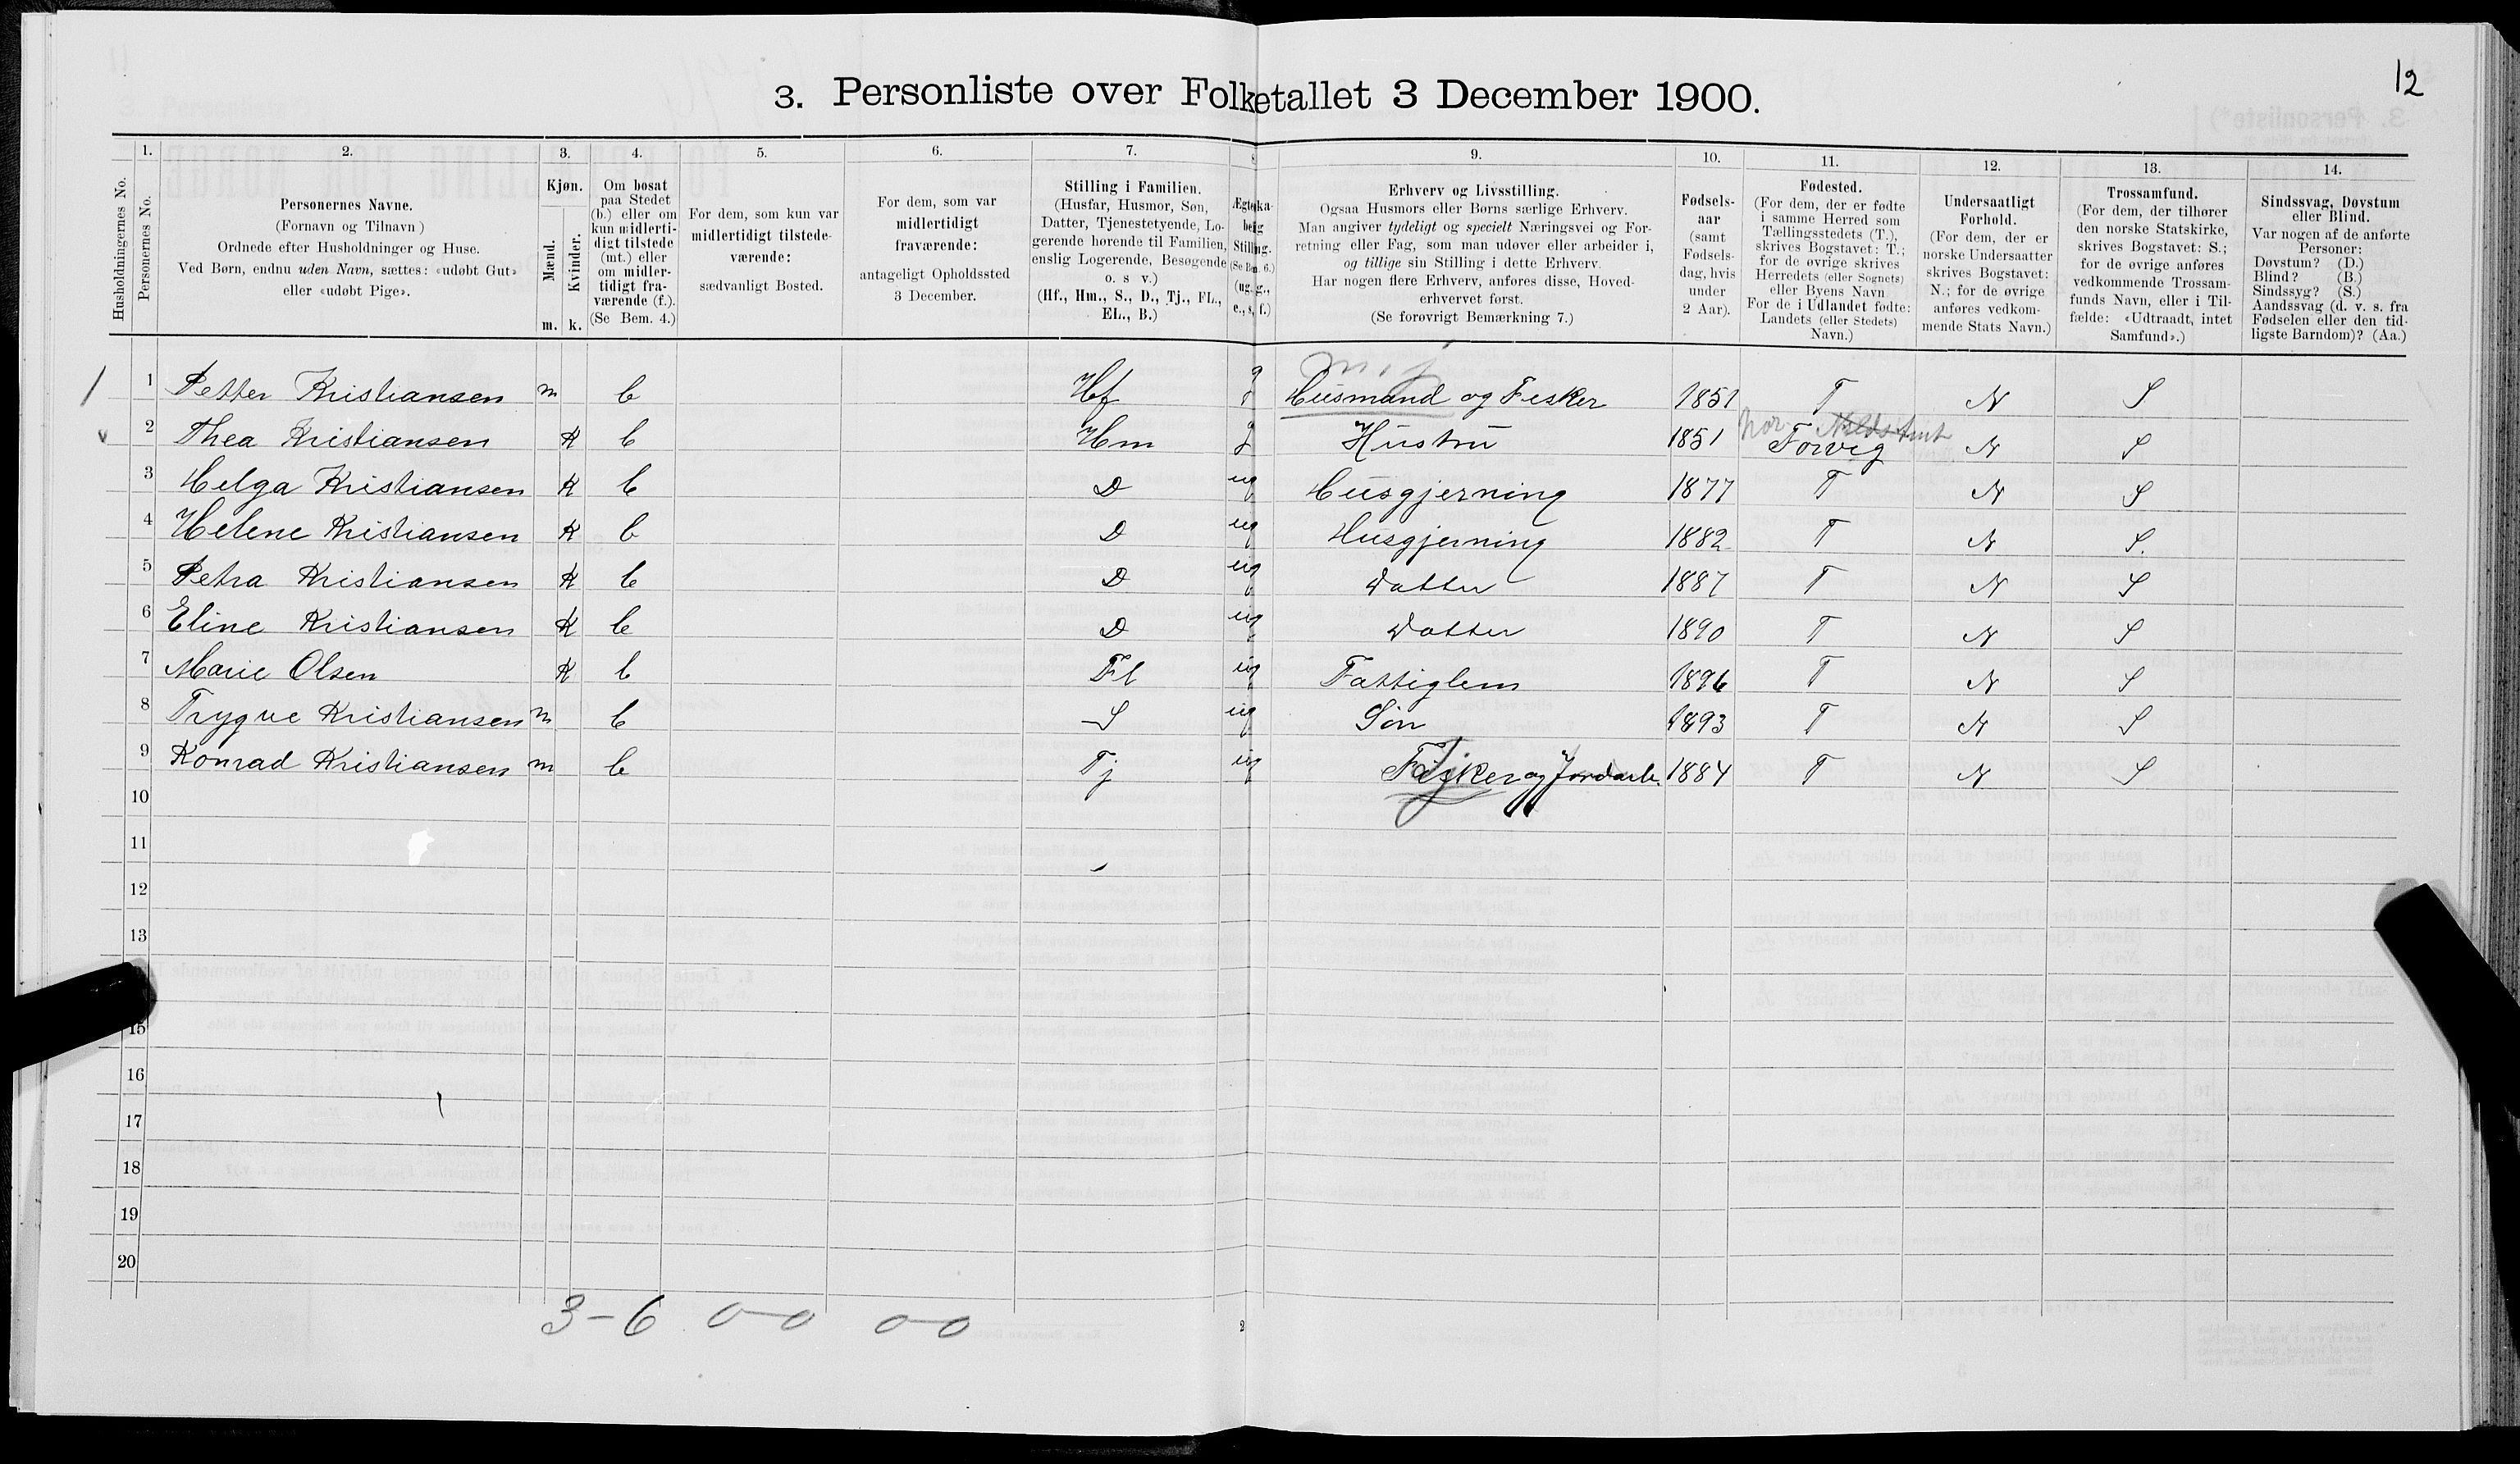 12
3. Personliste over Folketallet 3 December 1900.
1. 2. 3. 4. 5. 6. 7. 8 9. 10. 11. 12. 13. 14.
Husholdningernes No.
Personernes No.
Personernes Navne.
(Fornavn og Tilnavn)
Ordnede efter Husholdninger og Huse.
Ved Børn, endnu uden Navn, sættes: «udøbt Gut»
eller «udøbt Pige».
Kjøn.
Mænd.
Kvinder.
m. k.
Om bosat
paa Stedet
(b.) eller om
kun midlerti-
digt tilstede
(mt.) eller
om midler-
tidigt fra-
værende (f.).
(Se Bem. 4.)
For dem, som kun var
midlertidigt tilstede-
værende:
sædvanligt Bosted.
For dem, som var
midlertidigt
fraværende:
antageligt Opholdssted
3 December.
Stilling i Familien.
(Husfar, Husmor, Søn,
Datter, Tjenestetyende, Lo-
gerende hørende til Familien,
enslig Logerende, Besøgende
o. s v.)
(Hf., Hm., S., D., Tj., FL.,
EL., B.)
Ægteska-
belig
Stilling.
(Se Bem. 6.)
(ug., g.,
e., s., f.)
Erhverv og Livsstilling.
Ogsaa Husmors eller Børns særlige Erhverv.
Man angiver tydeligt og specielt Næringsvei og For-
retning eller Fag, som man udøver eller arbeider i,
og tillige sin Stilling i dette Erhverv.
Har nogen flere Erhverv, anføres disse, Hoved-
erhvervet først.
(Se forøvrigt Bemærkning 7.)
Fødsels-
aar
(samt
Fødsels-
dag, hvis
under
2 Aar).
Fødested.
(For dem, der er fødte
i samme Herred som
Tællingsstedets (T.),
skrives Bogstavet: T.;
for de øvrige skrives
Herredets (eller Sognets)
eller Byens Navn
For de i Udlandet fødte:
Landets (eller Stedets)
Navn.)
Undersaatligt
Forhold.
(For dem, der er
norske Undersaatter
skrives Bogstavet:
N.; for de øvrige
anføres vedkom-
mende Stats Navn.)
Trossamfund.
(For dem, der tilhører
den norske Statskirke,
skrives Bogstavet: S.;
for de øvrige anføres
vedkommende Trossam-
funds Navn, eller i Til-
fælde: «Udtraadt, intet
Samfund».)
Sindssvag, Døvstum
eller Blind.
Var nogen af de anførte
Personer:
Døvstum? (D.)
Blind? (B.)
Sindssyg? (S.)
Aandssvag (d. v. s. fra
Fødselen eller den tid-
ligste Barndom)? (Aa.)
1 1 Petter Kristiansen m b Hf g Husmand og Fisker 1851 T N S
v 2 Thea Kristiansen K b Hm g Hustru 1851 Forvig N S
3 Helga Kristiansen K b D ug Husgjerning 1877 T N S
4 Helene Kristiansen K b D ug Husgjerning 1882 T N S.
5 Petra Kristiansen K b D ug Datter 1887 T N S
6 Eline Kristiansen K b D ug Datter 1890 T N S
7 Marie Olsen K b Fl ug Fattiglem 1896 T N S
8 Trygve Kristiansen m b S ug Søn 1893 T N S
9 Konrad Kristiansen m b Tj ug Fisker og Jordarb. 1884 T N S
10
11
12
13
15
16
17
18
19
20
3-6 0-0 0-0
2